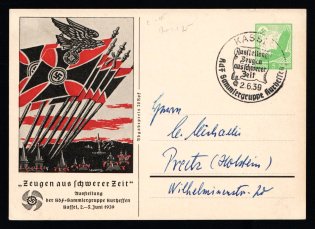 „Zeugen aus schwerer Zeit"
Ausstellung
der KdF-Sammlergruppe Kurhessen
Kassel, 2.-5. Juni 1939
KASSEL
Ausstellung
Zeugen
aus schwerer
Zeit
2.6.39
KdF Sammlergruppe Kurhessen
Herrn
C. Michaelis
Preetz (Holstein)
Wilhelminenstr. 20